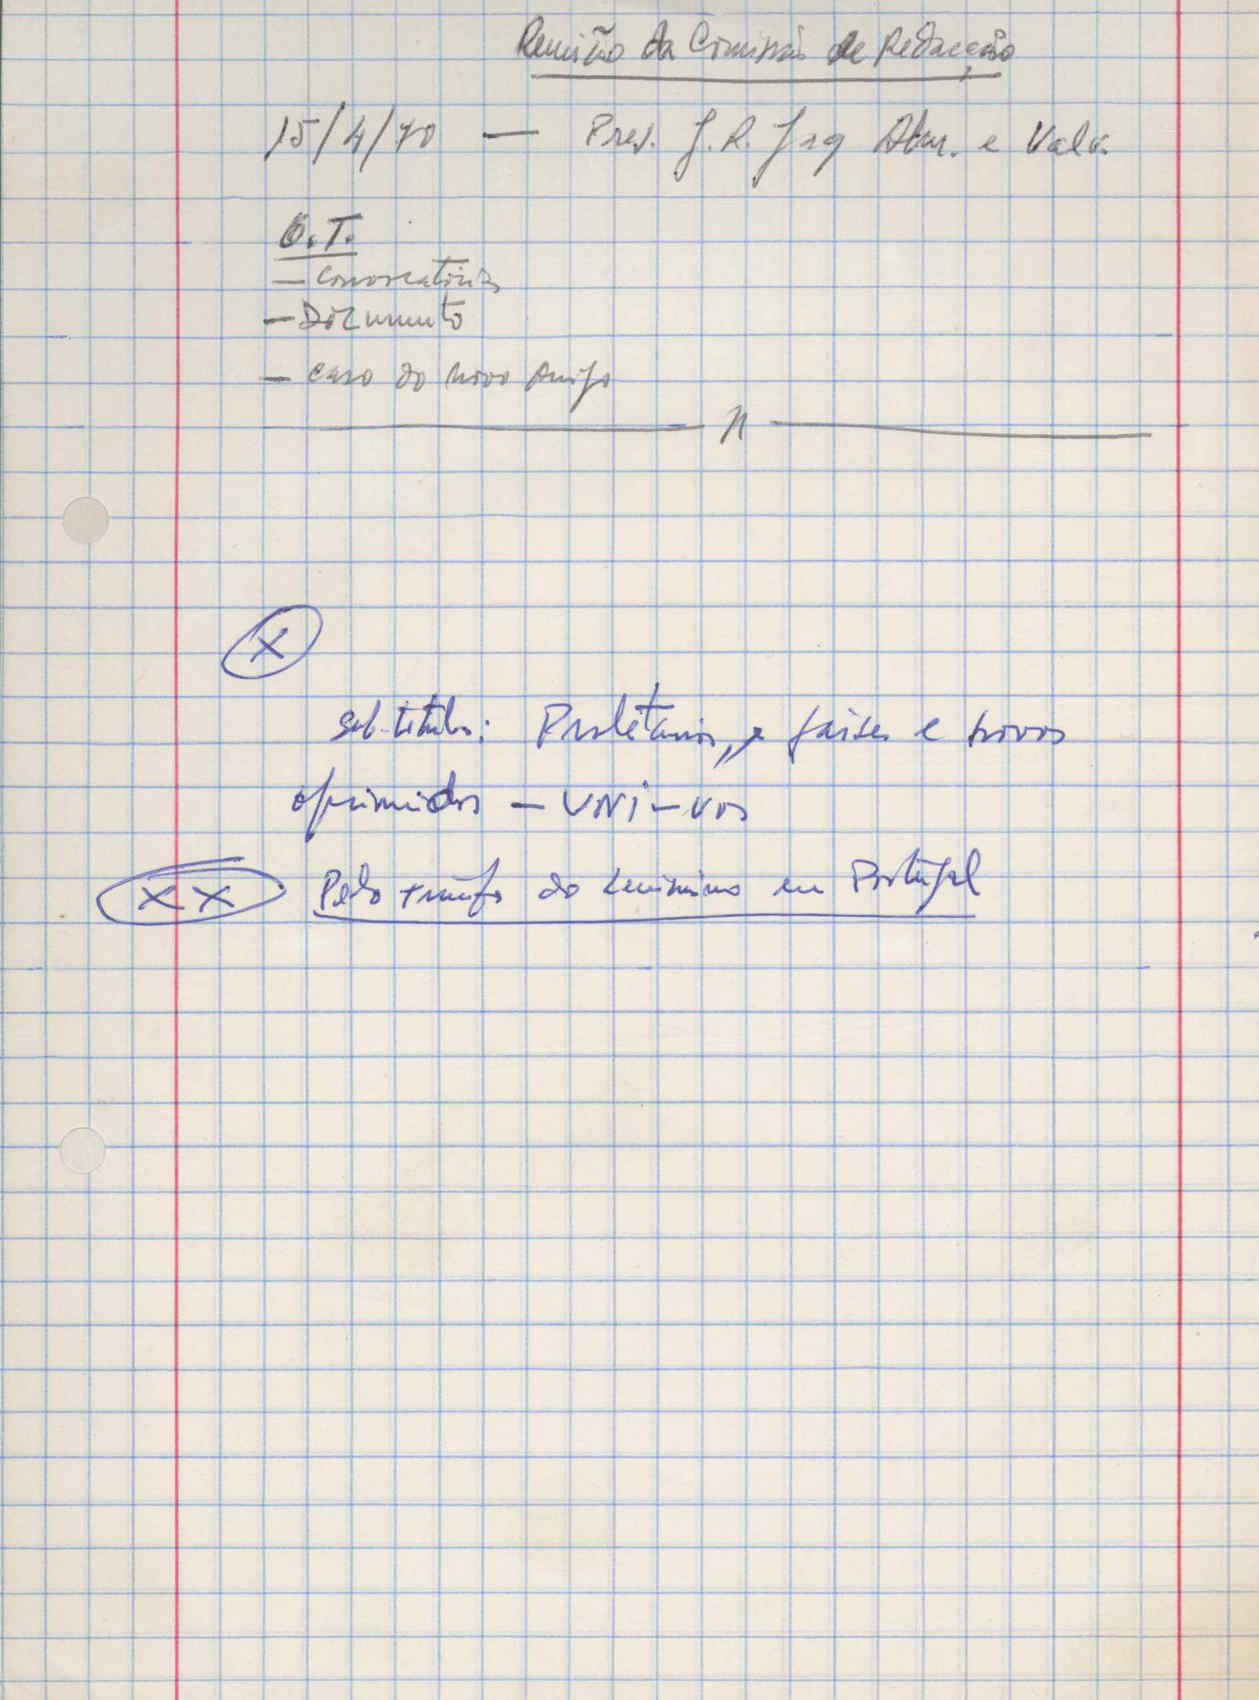 Reunião da Comissão de Redacção
15/4/70 — Pres. J. R. Jaq Abur. e Valv.
O.T.
— Convocatórias
— Documento
— caso do novo Amigo
X
sub-título: Proletários, e países e povos
oprimidos — UNI-vos
XX Pelo triunfo do Leninismo em Portugal